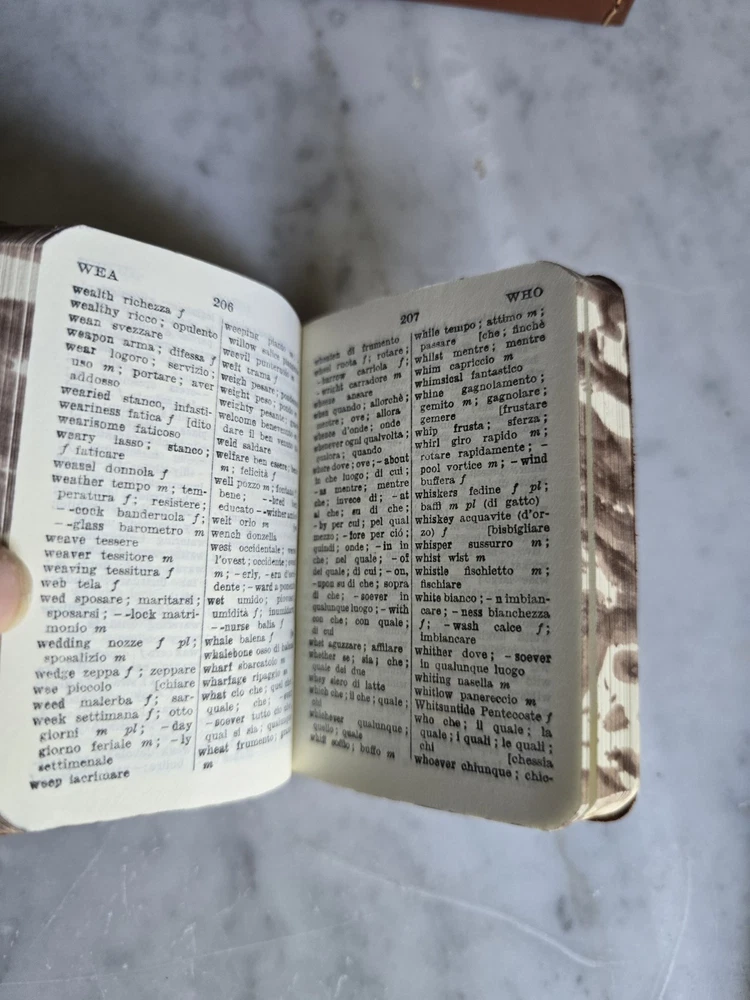 WEA
206
wealth richezza f
wealthy ricco; opulento
wean svezzare
weapon arma; difesa f
wear logoro; servizio;
uso m; portare; aver
addosso
wearied stanco, infasti-
weariness fatica f [dito
wearisome faticoso
weary lasso; stanco;
f faticare
weasel donnola f
weather tempo m; tem-
peratura f; resistere;
--cook banderuola f;
--glass barometro m
weave tessere
weaver tessitore m
weaving tessitura f
web tela f
wed sposare; maritarsi;
sposarsi; --lock matri-
monio m
wedding nozze f pl;
sposalizio m
wedge zeppa f; zeppare
wee piccolo [chiare
weed malerba f; sar-
week settimana f; otto
giorni m pl; -day
giorno feriale m; -ly
settimenale
weep lacrimare
weeping
willow
weevil
weft trama f
weigh pesare;
weight peso;
weighty pesante;
welcome benevenuto
dare il ben venuto
weld saldare
welfare ben essere;
m; felicità f
well pozzo m;
bene; --bred
educato --wisher
welt orlo m
wench donzella
west occidentale;
l'ovest; occidente
m; -erly, -ern
dente; -ward a
wet umido;
umidità f;
--nurse balia f
whale balena f
whalebone osso di
wharf sbarcatoio m
wharfage ripaggio
what ciò che;
quale; che;
-soever tutto ciò
qual si sia;
wheat frumento;
m
207
WHO
di frumento
wheel ruota f; rotare;
-barrow carriola f;
-wright carradore m
ansare
when quando; allorchè;
mentre; ove; allora
whence d'onde; onde
whenever ogni qualvolta;
quando
where dove; ove; -about
in che luogo; di cui;
-as mentre; mentre
che; invece di; -at
al che; su di che;
-by per cui; pel qual
mezzo; -fore per ciò;
quindi; onde; -in in
che; nel quale; -of
del quale; di cui; -on,
-upon su di che; sopra
di che; -soever in
qualunque luogo; -with
con che; con quale;
di cui
whet aguzzare; affilare
whether se; sia; che;
quale dei due
whey siero di latte
which che; il che; quale;
whichever qualunque;
quello; quale
whiff soffio; buffo m
while tempo; attimo m;
passare [che; finchè
whilst mentre; mentre
whim capriccio m
whimsical fantastico
whine gagnolamento;
gemito m; gagnolare;
gemere [frustare
whip frusta; sferza;
whirl giro rapido m;
rotare rapidamente; -
pool vortice m; -wind
buffera f
whiskers fedine f pl;
baffi m pl (di gatto)
whiskey acquavite (d'or-
zo) f [bisbigliare
whisper sussurro m;
whist wist m
whistle fischietto m;
fischiare
white bianco; -n imbian-
care; -ness bianchezza
f; -wash calce f;
imbiancare
whither dove; -soever
in qualunque luogo
whiting nasella m
whitlow panereccio m
Whitsuntide Pentecoste f
who che; il quale; la
quale; i quali; le quali;
chi [chessia
whoever chiunque; chic-